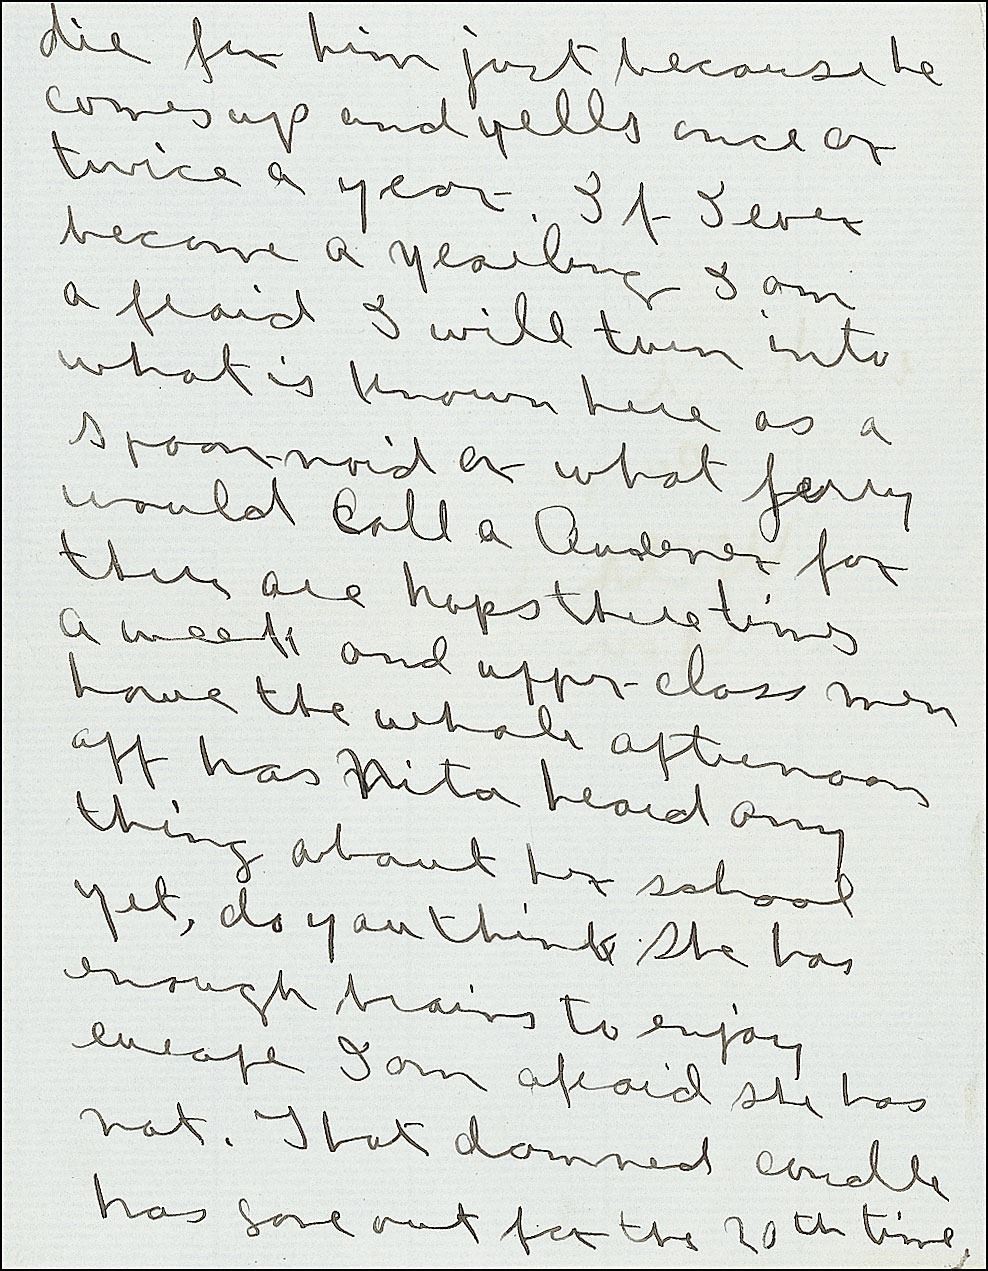 die for him just because he
comes up and yells once or
twice a year. If I ever
become a yearling I am
a fraid I will turn into
what is known here as a
spoon-noid or what Jerry
would call a for
there are hops three times
a week and upper-class men
have the whole afternoon
off has Nita heard any
thing about her school
yet, do you think she has
enough brains to enjoy
europe I am afraid she has
not. That damned candle
has gone out for the 20th time,